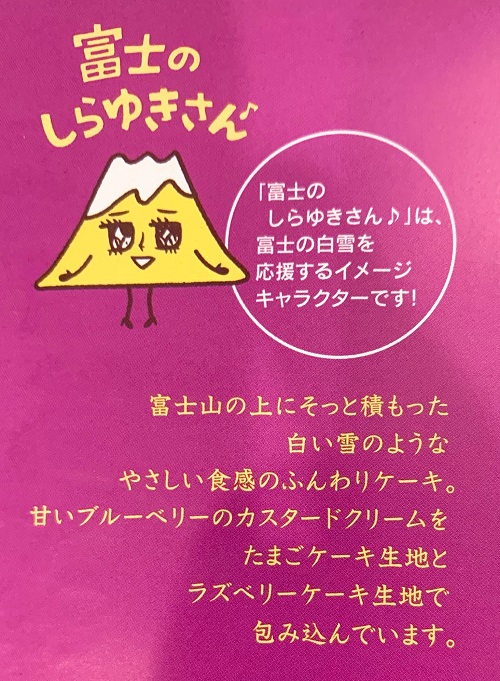 富士の
しらゆきさん♪
「富士の
しらゆきさん♪」は、
富士の白雪を
応援するイメージ
キャラクターです!
富士山の上にそっと積もった
白い雪のような
やさしい食感のふんわりケーキ。
甘いブルーベリーのカスタードクリームを
たまごケーキ生地と
ラズベリーケーキ生地で
包み込んでいます。